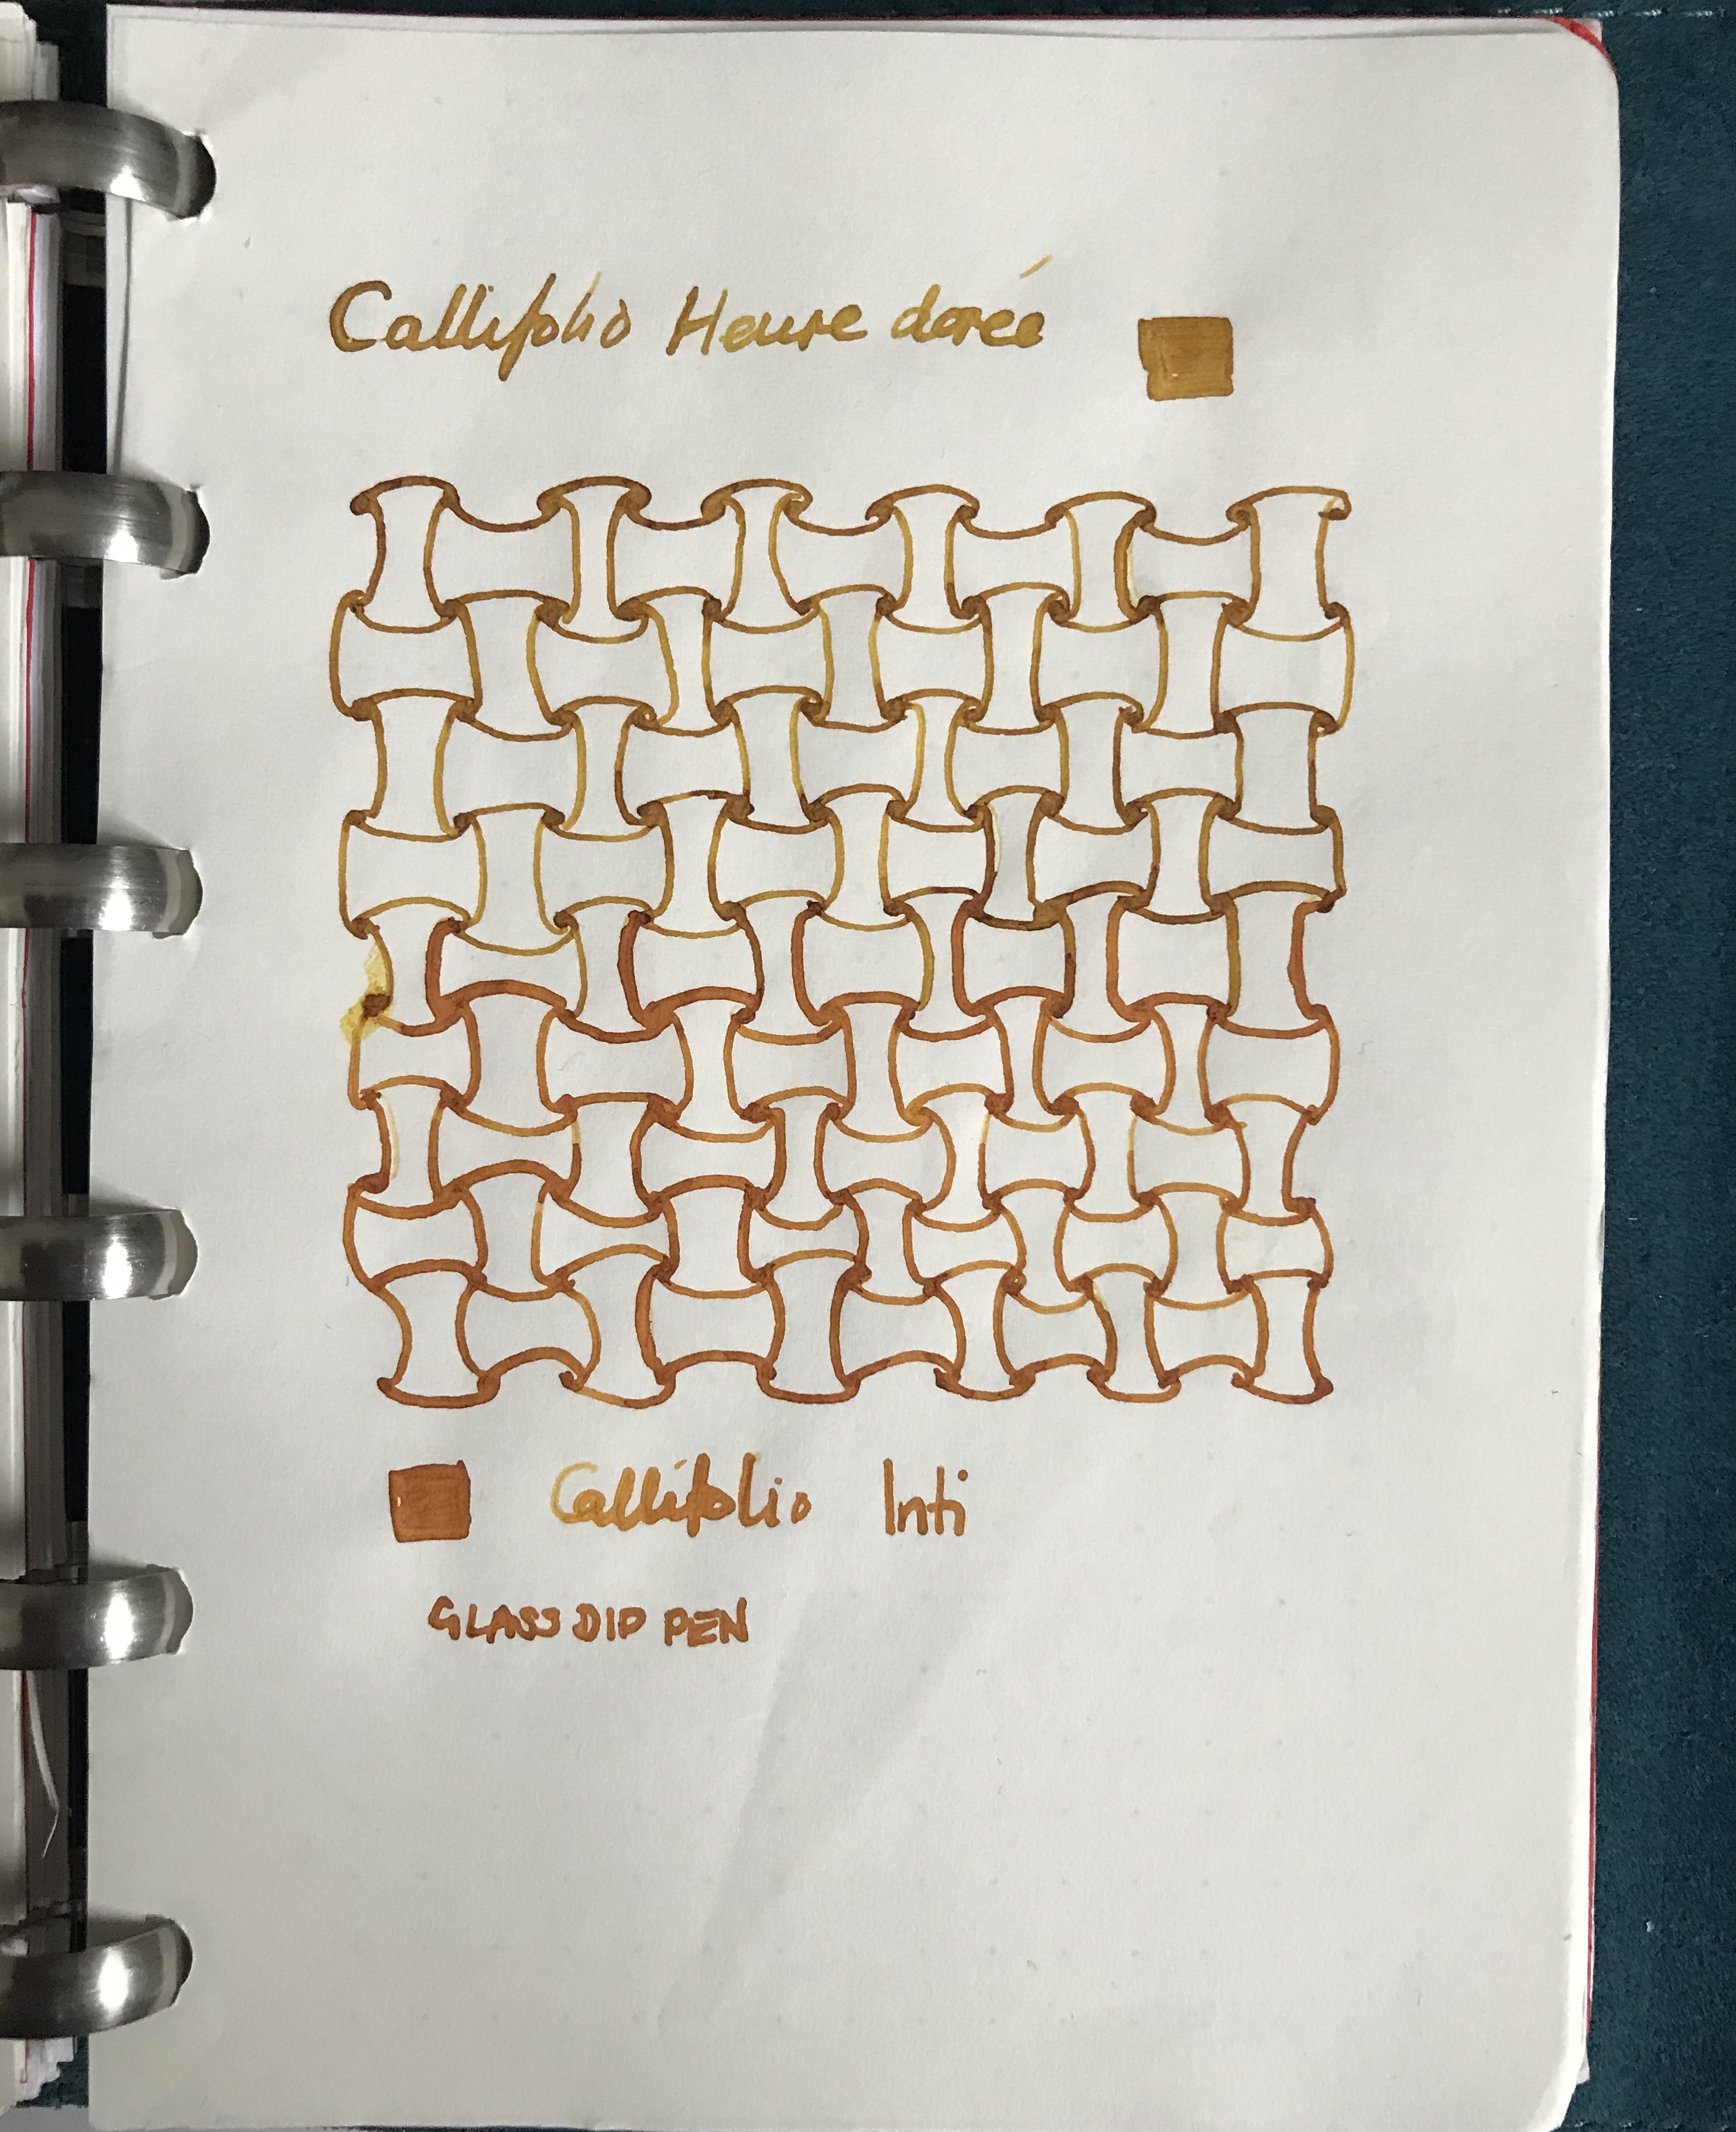 Callifolio Heure dorée
Callifolio Inti
GLASS DIP PEN